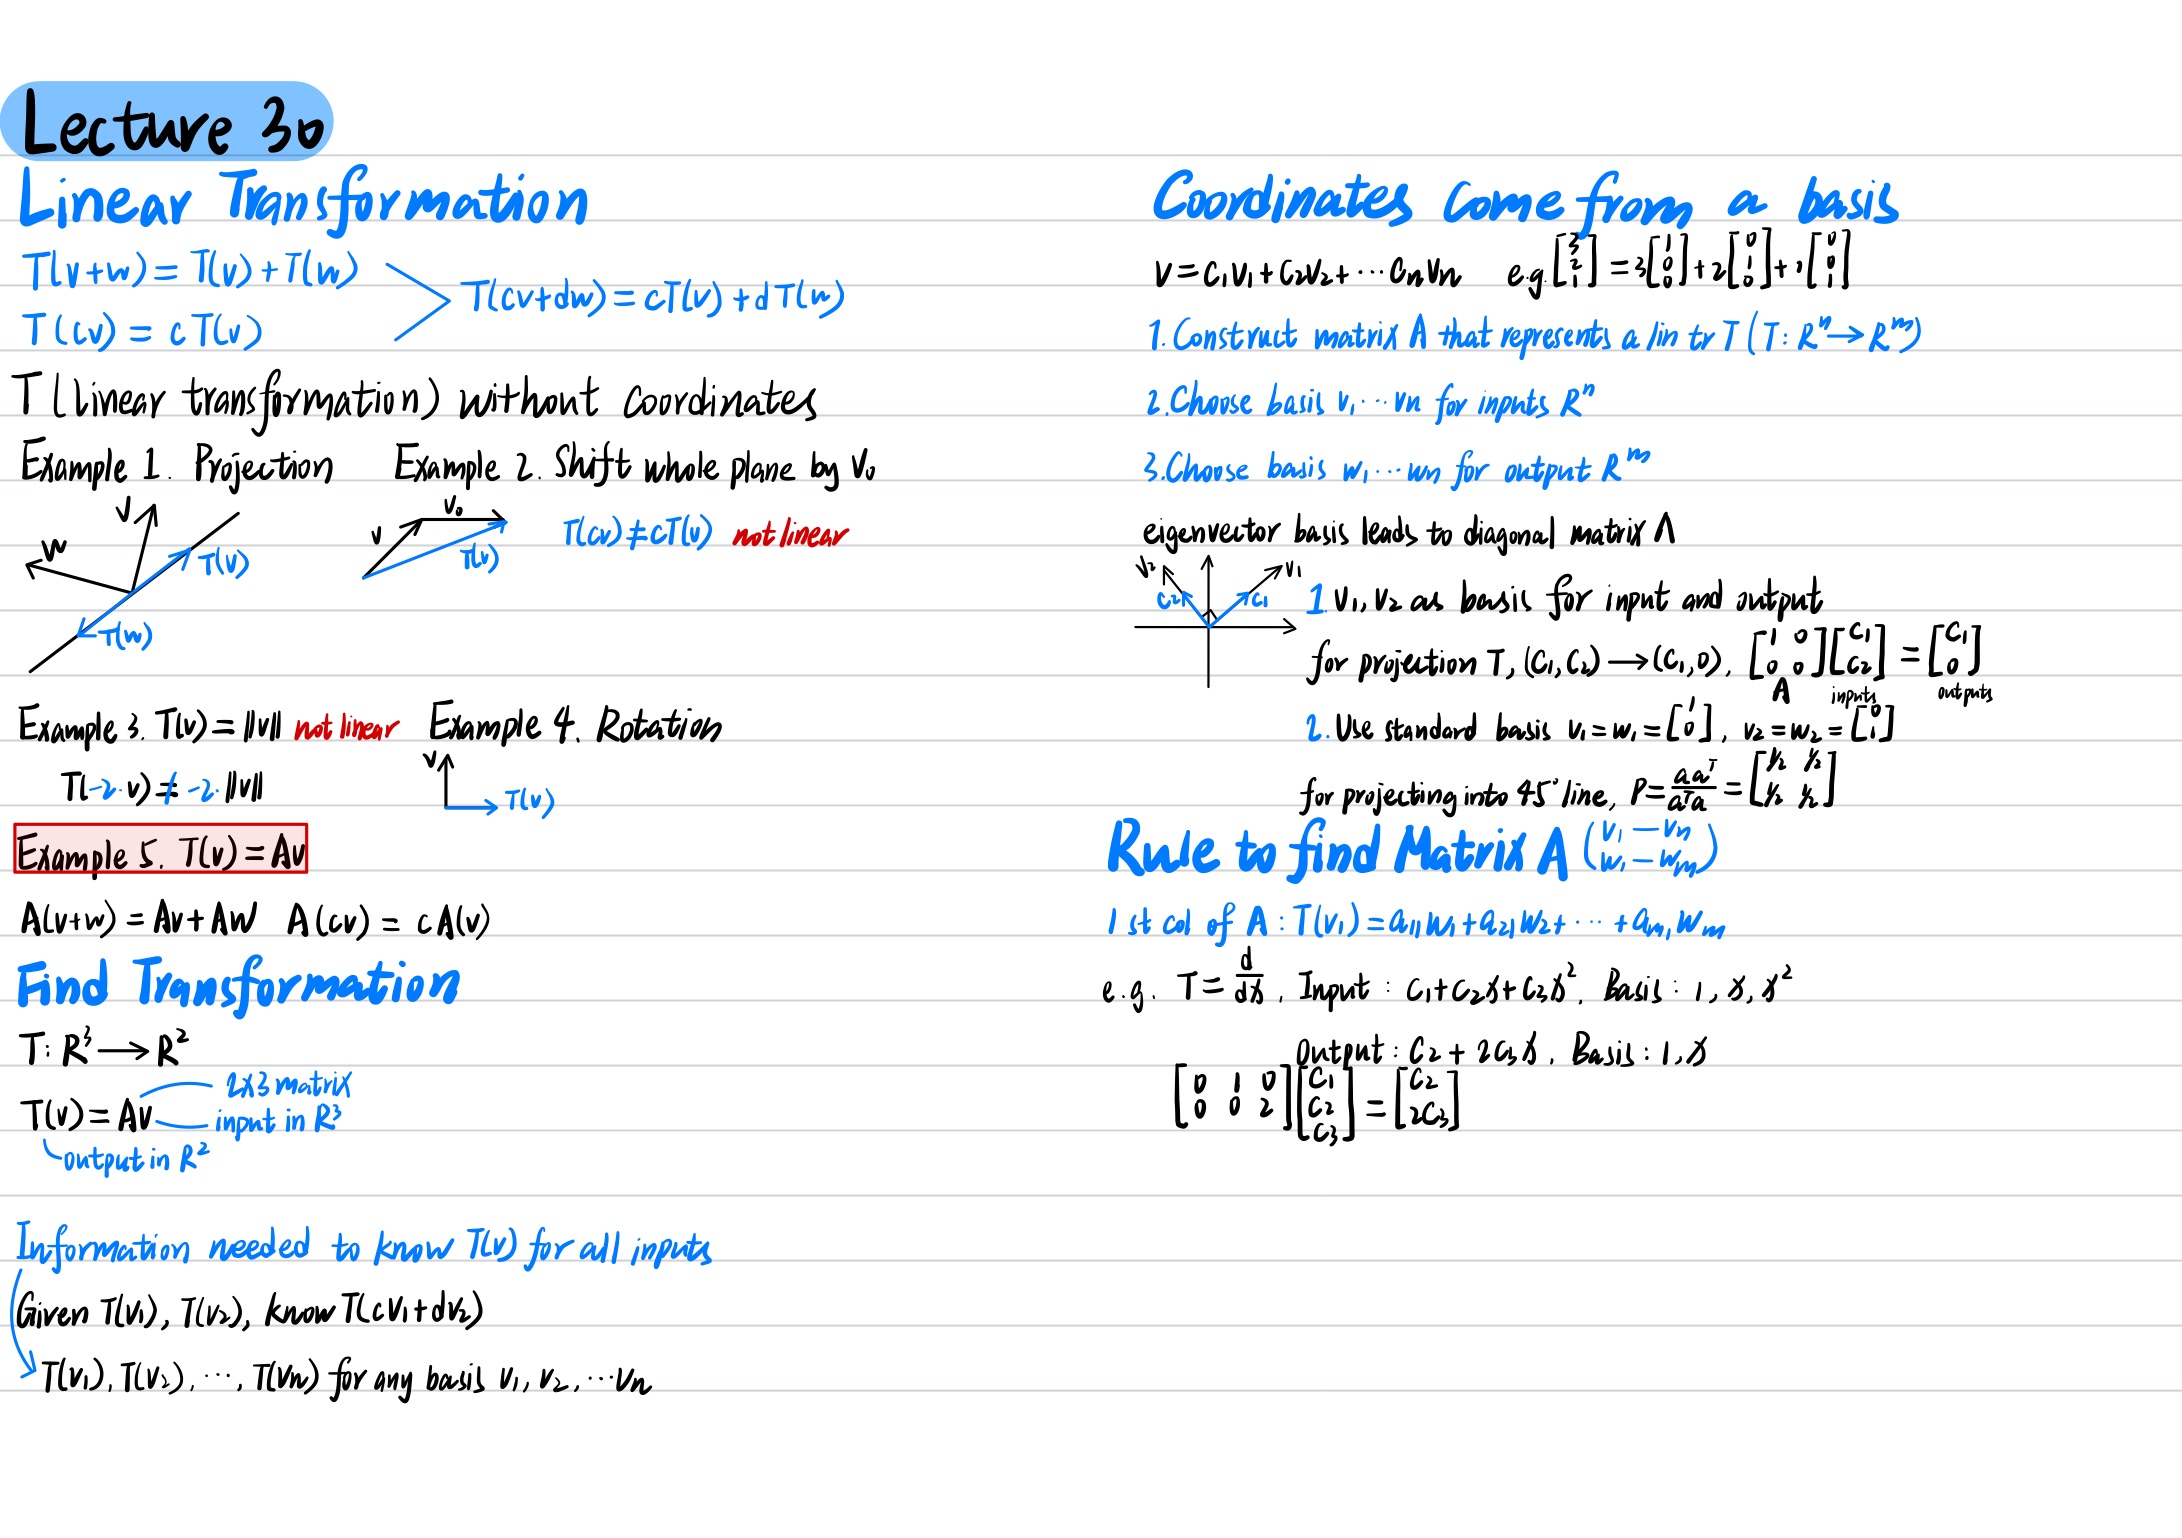 Lecture 30
Linear Transformation
T(v+w) = T(v) + T(w)
T(cv) = cT(v)
T(cv+dw) = cT(v) + dT(w)
T (linear transformation) without coordinates
Example 1. Projection
v
w
T(v)
T(w)
Example 2. Shift whole plane by v₀
v
v₀
T(v)
T(cv) ≠ cT(v) not linear
Example 3. T(v) = ||v|| not linear
T(-2·v) ≠ -2·||v||
Example 4. Rotation
v
T(v)
Example 5. T(v) = Av
A(v+w) = Av + Aw A(cv) = cA(v)
Find Transformation
T: R³ → R²
T(v) = Av
2x3 matrix
input in R³
output in R²
Information needed to know T(v) for all inputs
Given T(v₁), T(v₂), know T(cv₁+dv₂)
T(v₁), T(v₂), ⋯, T(vn) for any basis v₁, v₂, ⋯vn
Coordinates come from a basis
v = c₁v₁ + c₂v₂ + ⋯cnvn e.g. [3 2 1] = 3[1 0 0] + 2[0 1 0] + 1[0 0 1]
1. Construct matrix A that represents a lin tr T (T: Rⁿ → Rᵐ)
2. Choose basis v₁⋯vn for inputs Rⁿ
3. Choose basis w₁⋯wn for output Rᵐ
eigenvector basis leads to diagonal matrix Λ
v₂
v₁
c₂
c₁
1. v₁, v₂ as basis for input and output
for projection T, (c₁, c₂) → (c₁, 0), [1 0; 0 0][c₁; c₂] = [c₁; 0]
A inputs outputs
2. Use standard basis v₁ = w₁ = [1; 0], v₂ = w₂ = [0; 1]
for projecting into 45° line, P = aaᵀ/aᵀa = [1/2 1/2; 1/2 1/2]
Rule to find Matrix A (v₁ — vn
w₁ — wm)
1st col of A: T(v₁) = a₁₁w₁ + a₂₁w₂ + ⋯ + am₁wm
e.g. T = d/dx, Input: c₁+c₂x+c₃x², Basis: 1, x, x²
Output: c₂ + 2c₃x, Basis: 1, x
[0 1 0; 0 0 2][c₁; c₂; c₃] = [c₂; 2c₃]